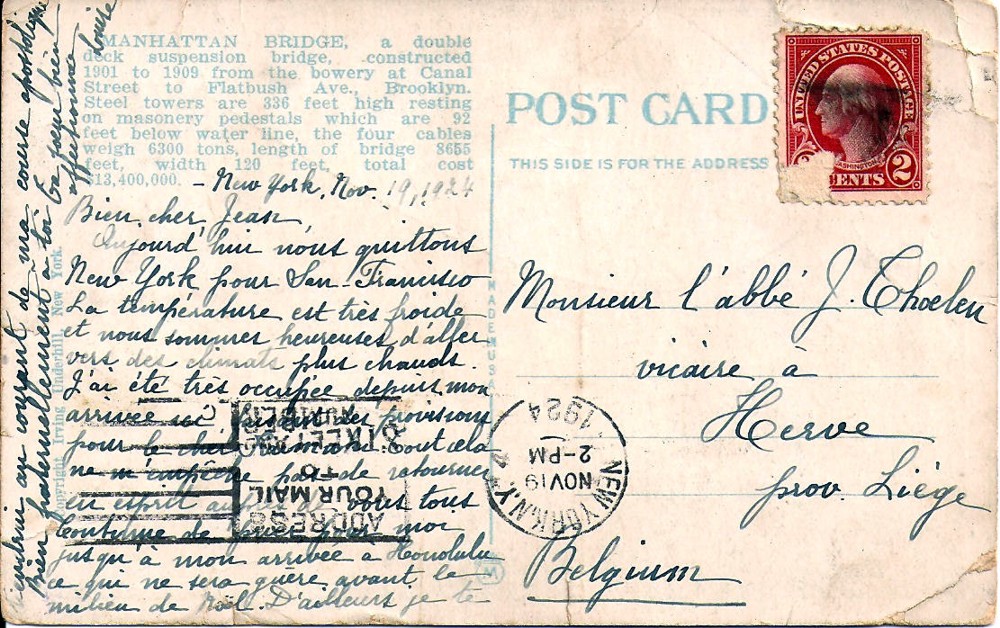 MANHATTAN BRIDGE, a double
deck suspension bridge, constructed
1901 to 1909 from the bowery at Canal
Street to Flatbush Ave., Brooklyn.
Steel towers are 336 feet high resting
on masonry pedestals which are 92
feet below water line, the four cables
weigh 6300 tons, length of bridge 8655
feet, width 120 feet, total cost
$13,400,000.
- New York, Nov. 19, 1924
Bien cher Jean
Aujourd'hui nous quittons
New York pour San-Francisco
La température est très froide
et nous sommes heureuses d'aller
vers des climats plus chauds.
J'ai été très occupée depuis mon
arrivée ici faisant des provisions
pour le cher Tout cela
ne m'empêche pas de retourner
en esprit auprès de vous tous
Continue de prier pour moi
jusqu'à mon arrivée à Honolulu
ce qui ne sera guère avant le
milieu de Noël. D'ailleurs je te
au courant de ma course apostolique
Bien fraternellement à toi Ta soeur bien
affectionnée Louise
Copyright Irving Underhill, New York.
POST CARD
THIS SIDE IS FOR THE ADDRESS
UNITED STATES POSTAGE
WASHINGTON
CENTS 2
MADE IN U S A
Monsieur l'abbé J. Thoelen
vicaire à
Herve
prov. Liège
Belgium
NEW YORK, N.Y.
NOV 19
2-PM
1924
ADDRESS
YOUR MAIL
TO
STREET AND
NUMBER